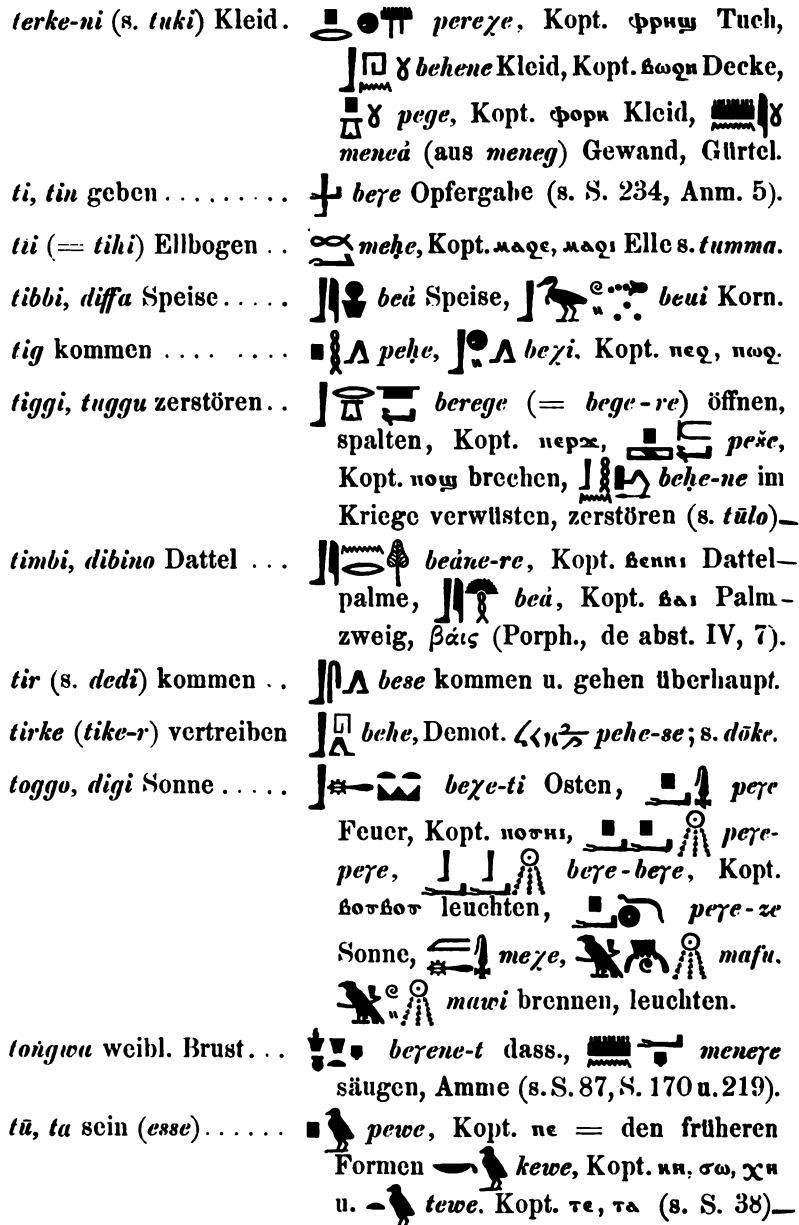 terke-ni (s. tuki) Kleid. pereχe, Kopt. ⲫⲣⲏϣ Tuch,
behene Kleid, Kopt. ⲃⲱϩⲛ Decke,
pege, Kopt. ⲫⲟⲣⲕ Kleid,
meneȧ (aus meneg) Gewand, Gürtel.
ti, tin geben . . . . . . . . . . beɤe Opfergabe (s. S. 234, Anm. 5).
tii (= tihi) Ellbogen . . meḥe, Kopt. ⲙⲁϩⲉ, ⲙⲁϩⲓ Elle s. tumma.
tibbi, diffa Speise . . . . . beȧ Speise, beui Korn.
tig kommen . . . . . . . . peḥe, beχi. Kopt. ⲡⲉϩ, ⲡⲱϩ.
tiggi, tuggu zerstören . . berege (= bege-re) öffnen,
spalten, Kopt. ⲡⲉⲣϫ, peše,
Kopt. ⲡⲟϣ brechen, beḥe-ne im
Kriege verwüsten, zerstören (s. tūlo)
timbi, dibino Dattel . . . beȧne-re, Kopt. ⲃⲉⲛⲛⲓ Dattel-
palme, beȧ, Kopt. ⲃⲁⲓ Palm-
zweig, βάις (Porph., de abst. IV, 7).
tir (s. dedi) kommen . . bese kommen u. gehen überhaupt.
tirke (tike-r) vertreiben behe, Demot. pehe-se; s. dōke.
toggo, digi Sonne . . . . . beχe-ti Osten, peɤe
Feuer, Kopt. peɤe-
peɤe, beɤe-beɤe, Kopt.
ⲃⲟⲩⲃⲟⲩ leuchten, peɤe-ze
Sonne, meχe, mafu,
mawi brennen, leuchten.
toṅgwa weibl. Brust . . . beɤene-t dass., meneɤe
säugen, Amme (s. S. 87, S. 170 u. 219).
tū, ta sein (esse) . . . . . . pewe, Kopt. ⲡⲉ = den früheren
Formen kewe, Kopt.
u. tewe. Kopt. ⲧⲉ, ⲧⲁ (s. S. 38)